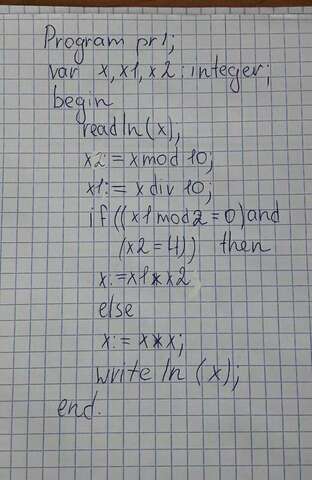 Program pr1;
var x, x1, x2: integer;
begin
readln(x);
x2:= x mod 10;
x1:= x div 10;
if((x1 mod 2 = 0) and
(x2=4)) then
x:=x1*x2
else
x:= x*x;
writeln (x);
end.